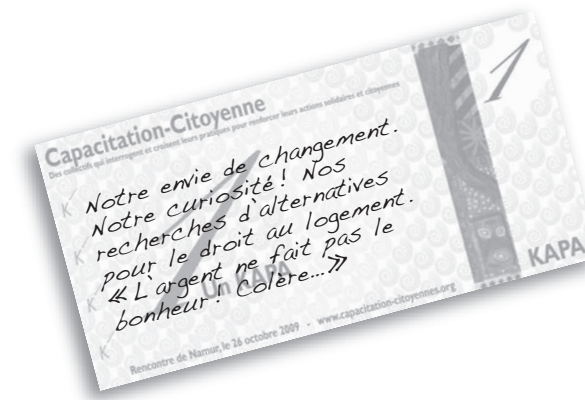 Capacitation-Citoyenne
Des collectifs qui interrogent et croisent leurs pratiques pour renforcer leurs actions solidaires et citoyennes
1
Notre envie de changement.
Notre curiosité! Nos
recherches d'alternatives
pour le droit au logement.
«L'argent ne fait pas le
bonheur! Colère...»
Un KAPA
KAPA
Rencontre de Namur, le 26 octobre 2009 • www.capacitation-citoyennes.org